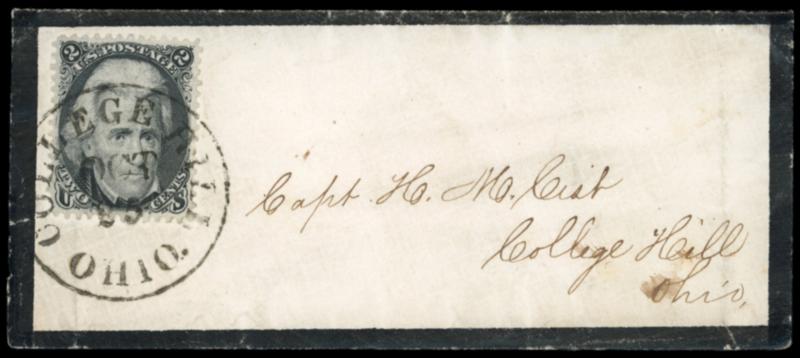 2 U.S. POSTAGE 2
COLLEGE HILL
OCT
25
OHIO.
U 2 CENTS 2 S
Capt. H. M. Cist
College Hill
Ohio,